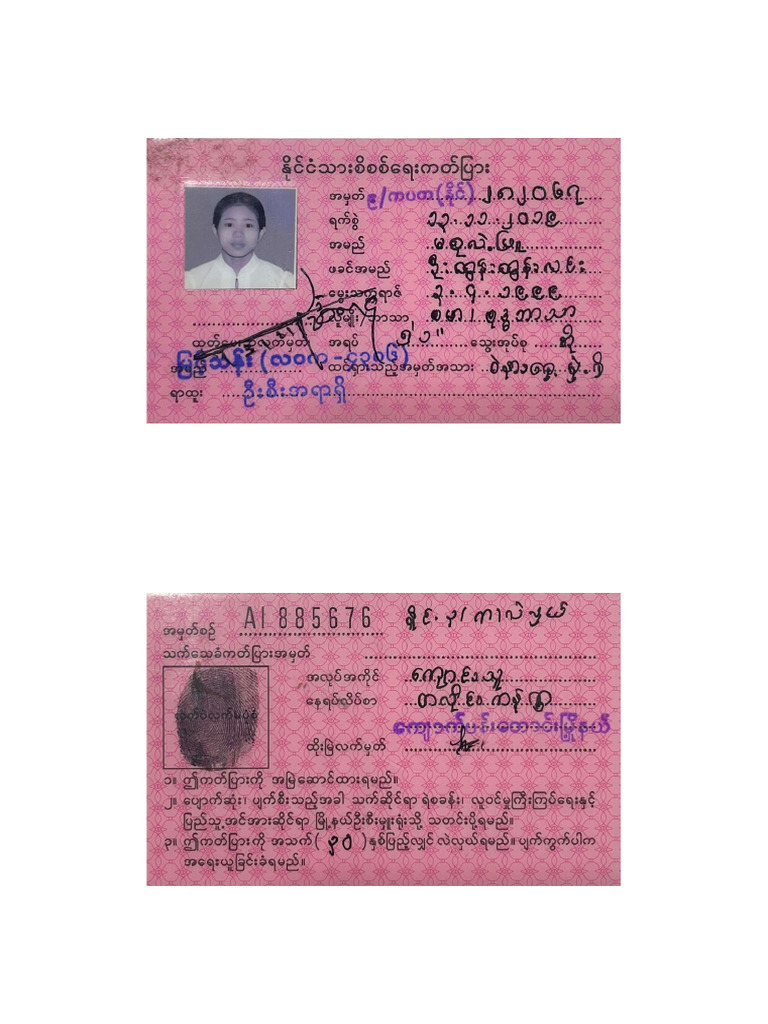 နိုင်ငံသားစိစစ်ရေးကတ်ပြား
အမှတ် ၉/ကပတ(နိုင်) ၂၈၂၀၆၇
ရက်စွဲ ၁၃.၁၁.၂၀၁၉
အမည် မစုလဲ့ဖြူ
ဖခင်အမည် ဦးထွန်းထွန်းလင်း
မွေးသက္ကရာဇ် ၃.၇.၁၉၉၉
လူမျိုး/ဘာသာ ဗမာ၊ ဗုဒ္ဓဘာသာ
ထုတ်ပေးသူလက်မှတ် အရပ် ၅'၁" သွေးအုပ်စု အို
မြင့်သန်း (လဝက - ၄၃၀၆)
အမည် ထင်ရှားသည့်အမှတ်အသား ဝဲနားရွှေ့မှဲ့ရှိ
ရာထူး ဦးစီးအရာရှိ
အမှတ်စဉ် AI 885676
သက်သေခံကတ်ပြားအမှတ်
အလုပ်အကိုင် ကျောင်းသူ
နေရပ်လိပ်စာ
ကျောက်ပန်းတောင်းမြို့နယ်
လက်ဝဲလက်မပုံစံ
ထိုးမြဲလက်မှတ်
၁။ ဤကတ်ပြားကို အမြဲဆောင်ထားရမည်။
၂။ ပျောက်ဆုံး၊ ပျက်စီးသည့်အခါ သက်ဆိုင်ရာ ရဲစခန်း၊ လူဝင်မှုကြီးကြပ်ရေးနှင့်
ပြည်သူ့အင်အားဆိုင်ရာ မြို့နယ်ဦးစီးမှူးရုံးသို့ သတင်းပို့ရမည်။
၃။ ဤကတ်ပြားကို အသက်( ၃၀ )နှစ်ပြည့်လျှင် လဲလှယ်ရမည်။ ပျက်ကွက်ပါက
အရေးယူခြင်းခံရမည်။